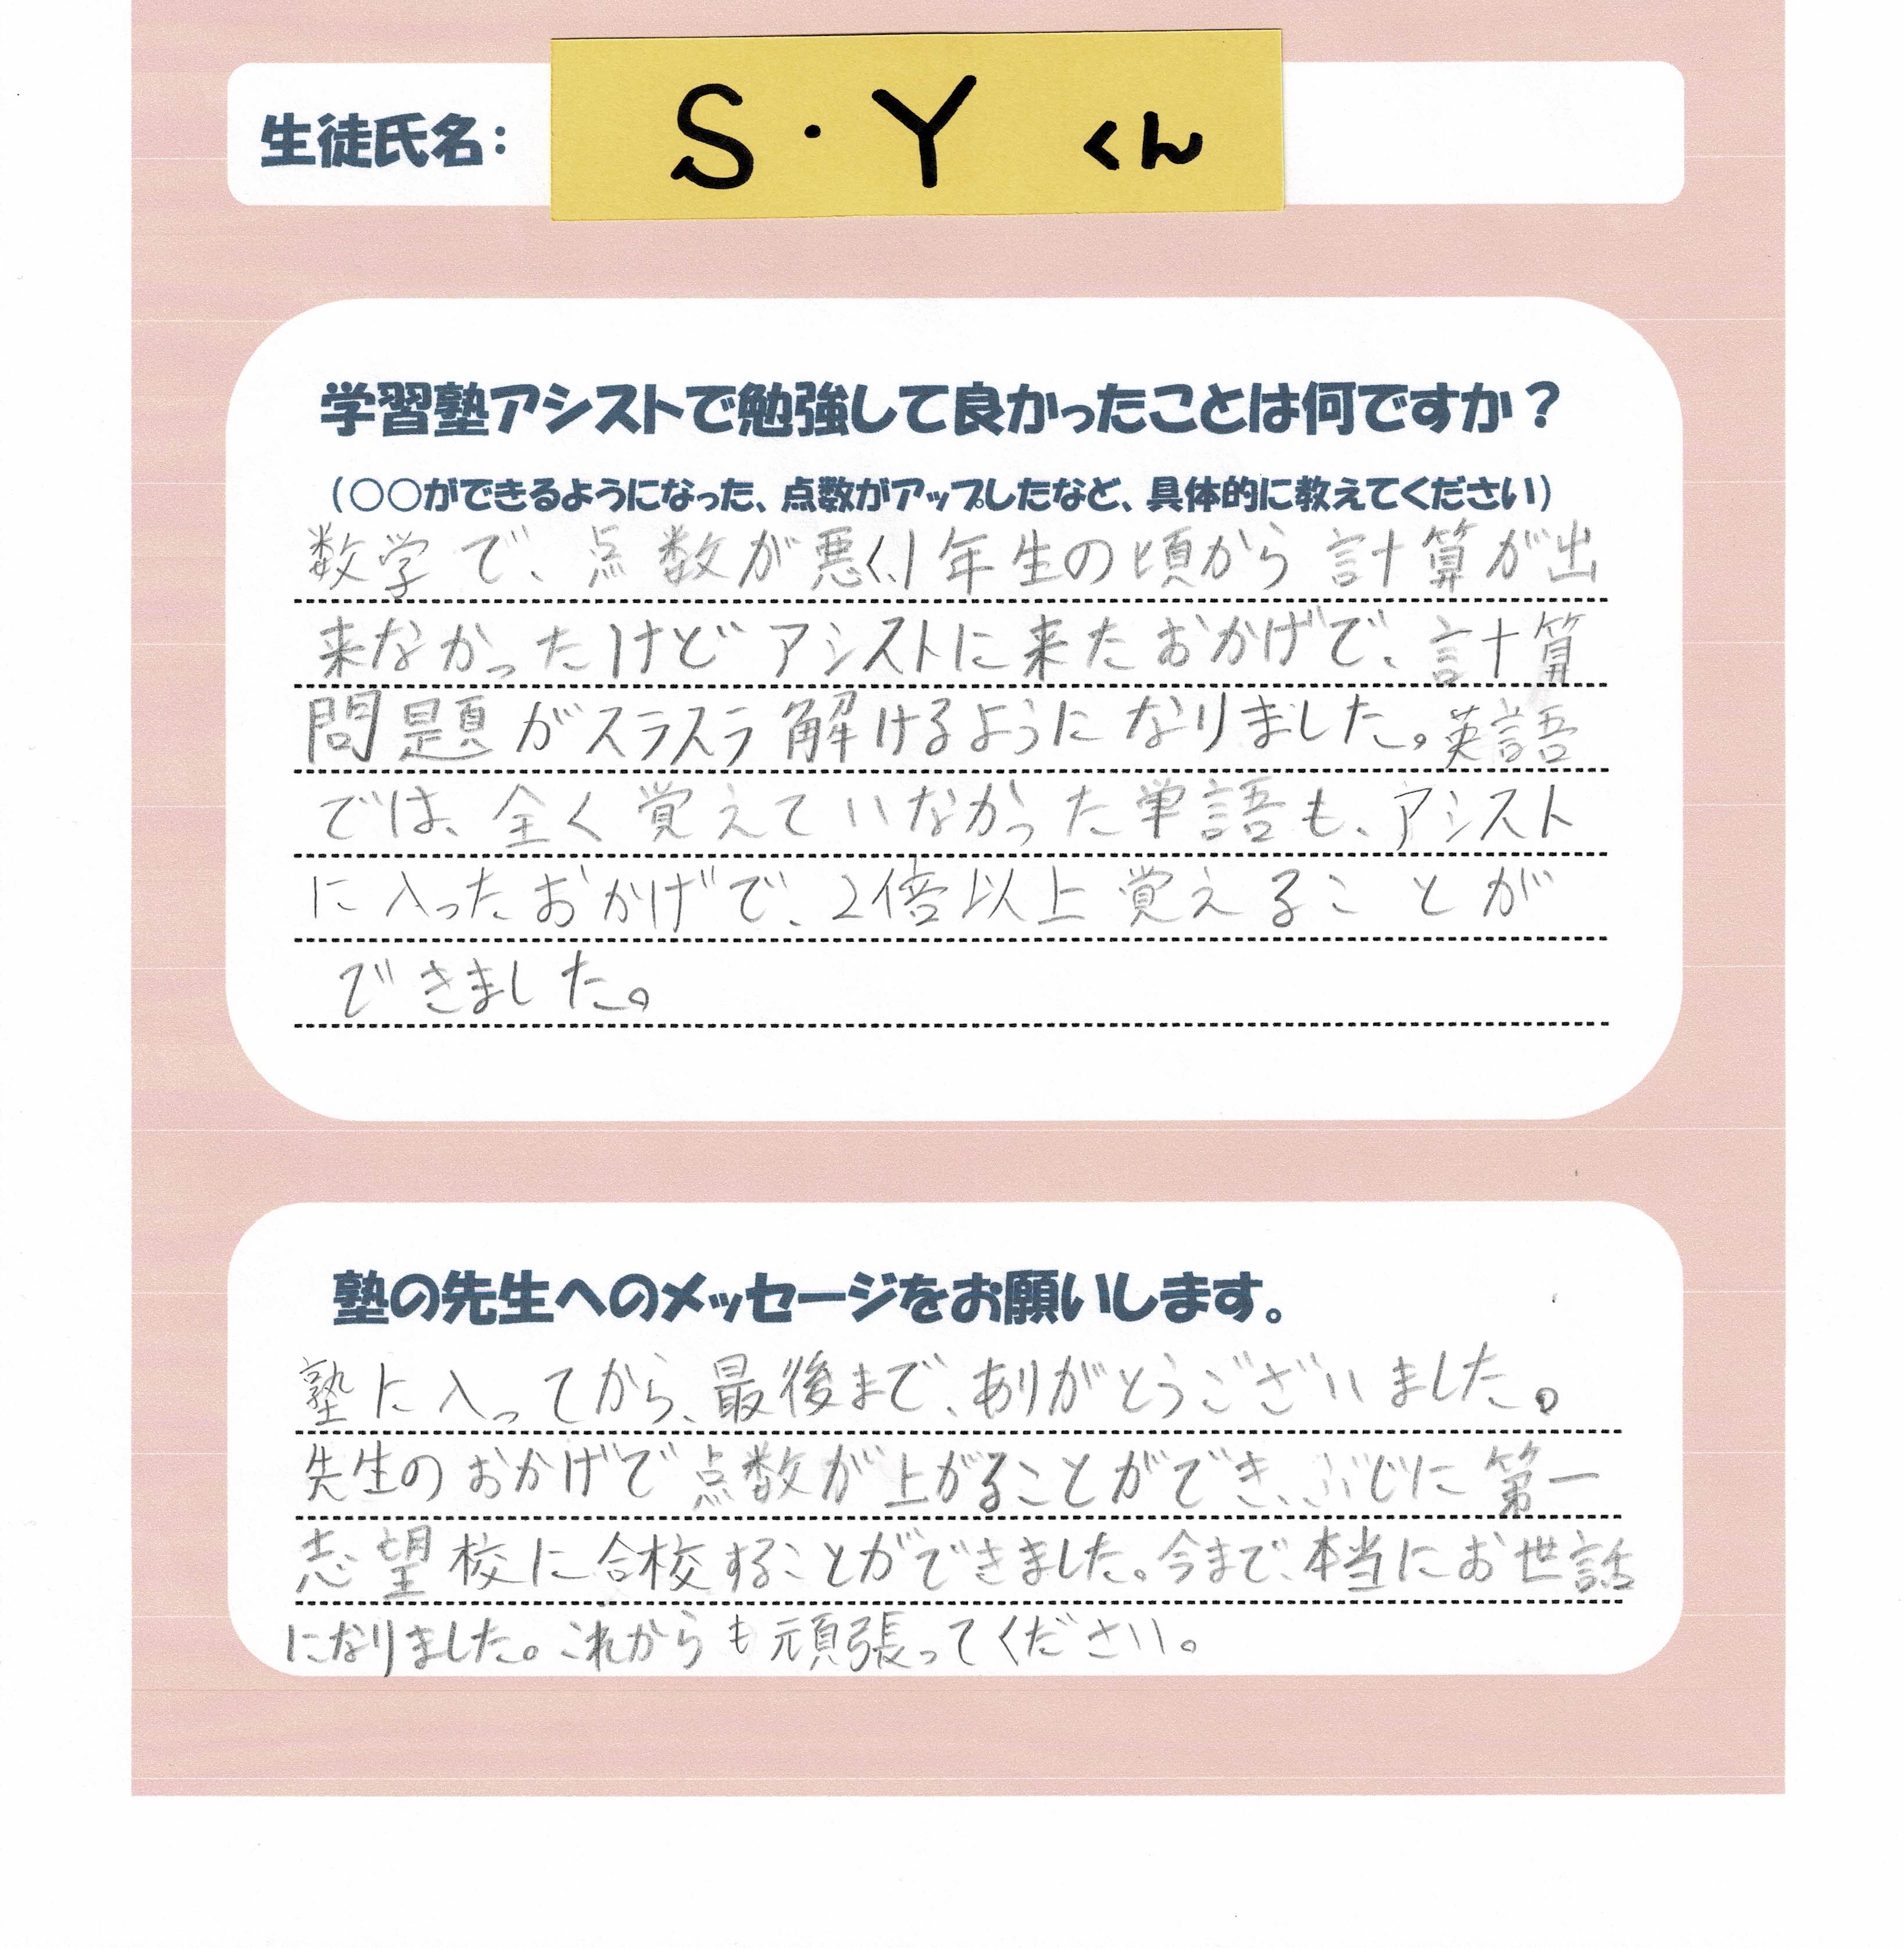 生徒氏名： S・Y くん
学習塾アシストで勉強して良かったことは何ですか？
（○○ができるようになった、点数がアップしたなど、具体的に教えてください）
数学で、点数が悪く、1年生の頃から計算が出
来なかったけどアシストに来たおかげで、計算
問題がスラスラ解けるようになりました。英語
では、全く覚えていなかった単語も、アシスト
に入ったおかげで、2倍以上覚えることが
できました。
塾の先生へのメッセージをお願いします。
塾に入ってから、最後まで、ありがとうございました。
先生のおかげで点数が上がることができ、ぶじに第一
志望校に合校することができました。今まで、本当にお世話
になりました。これからも頑張ってください。